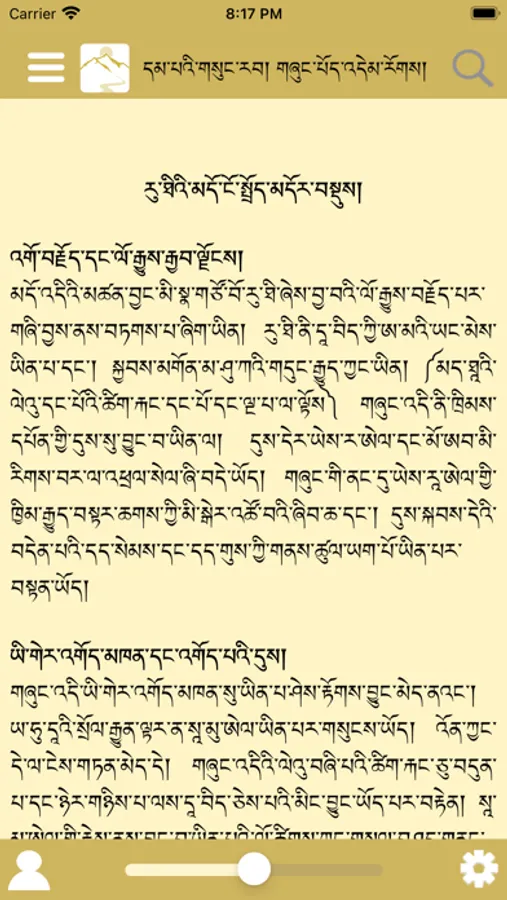 Carrier 8:17 PM
དམ་པའི་གསུང་རབ། གཞུང་པོད་འདེམ་རོགས།
རུ་ཐིའི་མདོ་ངོ་སྤྲོད་མདོར་བསྡུས།
འགོ་བརྗོད་དང་ལོ་རྒྱུས་རྒྱབ་ལྗོངས།
མདོ་འདིའི་མཚན་བྱང་མི་སྣ་གཙོ་བོ་རུ་ཐི་ཞེས་བྱ་བའི་ལོ་རྒྱུས་བརྗོད་པར་
གཞི་བྱས་ནས་བཏགས་པ་ཞིག་ཡིན། རུ་ཐི་ནི་དཱ་བིད་ཀྱི་ཨ་མའི་ཡང་མེས་
ཡིན་པ་དང་། སྐྱབས་མགོན་མ་ཤུ་ཀའི་གདུང་རྒྱུད་ཀྱང་ཡིན། ༼མད་ཐཱའི་
ལེའུ་དང་པོའི་ཚིག་རྐང་དང་པོ་དང་ལྔ་པ་ལ་ལྟོས༽ གཞུང་འདི་ནི་ཁྲིམས་
དཔོན་གྱི་དུས་སུ་བྱུང་བ་ཡིན་ལ། དུས་དེར་ཡེས་ར་ཨེལ་དང་མོ་ཨབ་མི་
རིགས་བར་ལ་འཕྲལ་སེལ་ཞི་བདེ་ཡོད། གཞུང་གི་ནང་དུ་ཡེས་རཱ་ཨེལ་གྱི་
ཁྱིམ་རྒྱུད་བསྟར་ཆགས་ཀྱི་མི་སྒེར་འཚོ་བའི་ཞིབ་ཆ་དང་། དུས་སྐབས་དེའི་
བདེན་པའི་དད་སེམས་དང་དད་གུས་ཀྱི་གནས་ཚུལ་ཡག་པོ་ཡིན་པར་
བསྟན་ཡོད།
ཡི་གེར་འགོད་མཁན་དང་འགོད་པའི་དུས།
གཞུང་འདི་ཡི་གེར་འགོད་མཁན་སུ་ཡིན་པ་ཤེས་རྟོགས་བྱུང་མེད་ནའང་།
ཡ་ཧུ་དཱའི་སྲོལ་རྒྱུན་ལྟར་ན་སཱ་མུ་ཨེལ་ཡིན་པར་གསུངས་ཡོད། འོན་ཀྱང་
དེ་ལ་ངེས་གཏན་མེད་དེ། གཞུང་འདིའི་ལེའུ་བཞི་པའི་ཚིག་རྐང་ཅུ་བདུན་
པ་དང་ཉེར་གཉིས་པ་ལས་དཱ་བིད་ཅེས་པའི་མིང་བྱུང་ཡོད་པར་བརྟེན། སཱ་